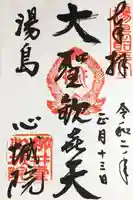 奉拝
令和二年
正月十三日
大聖歓喜天
湯島
心城院